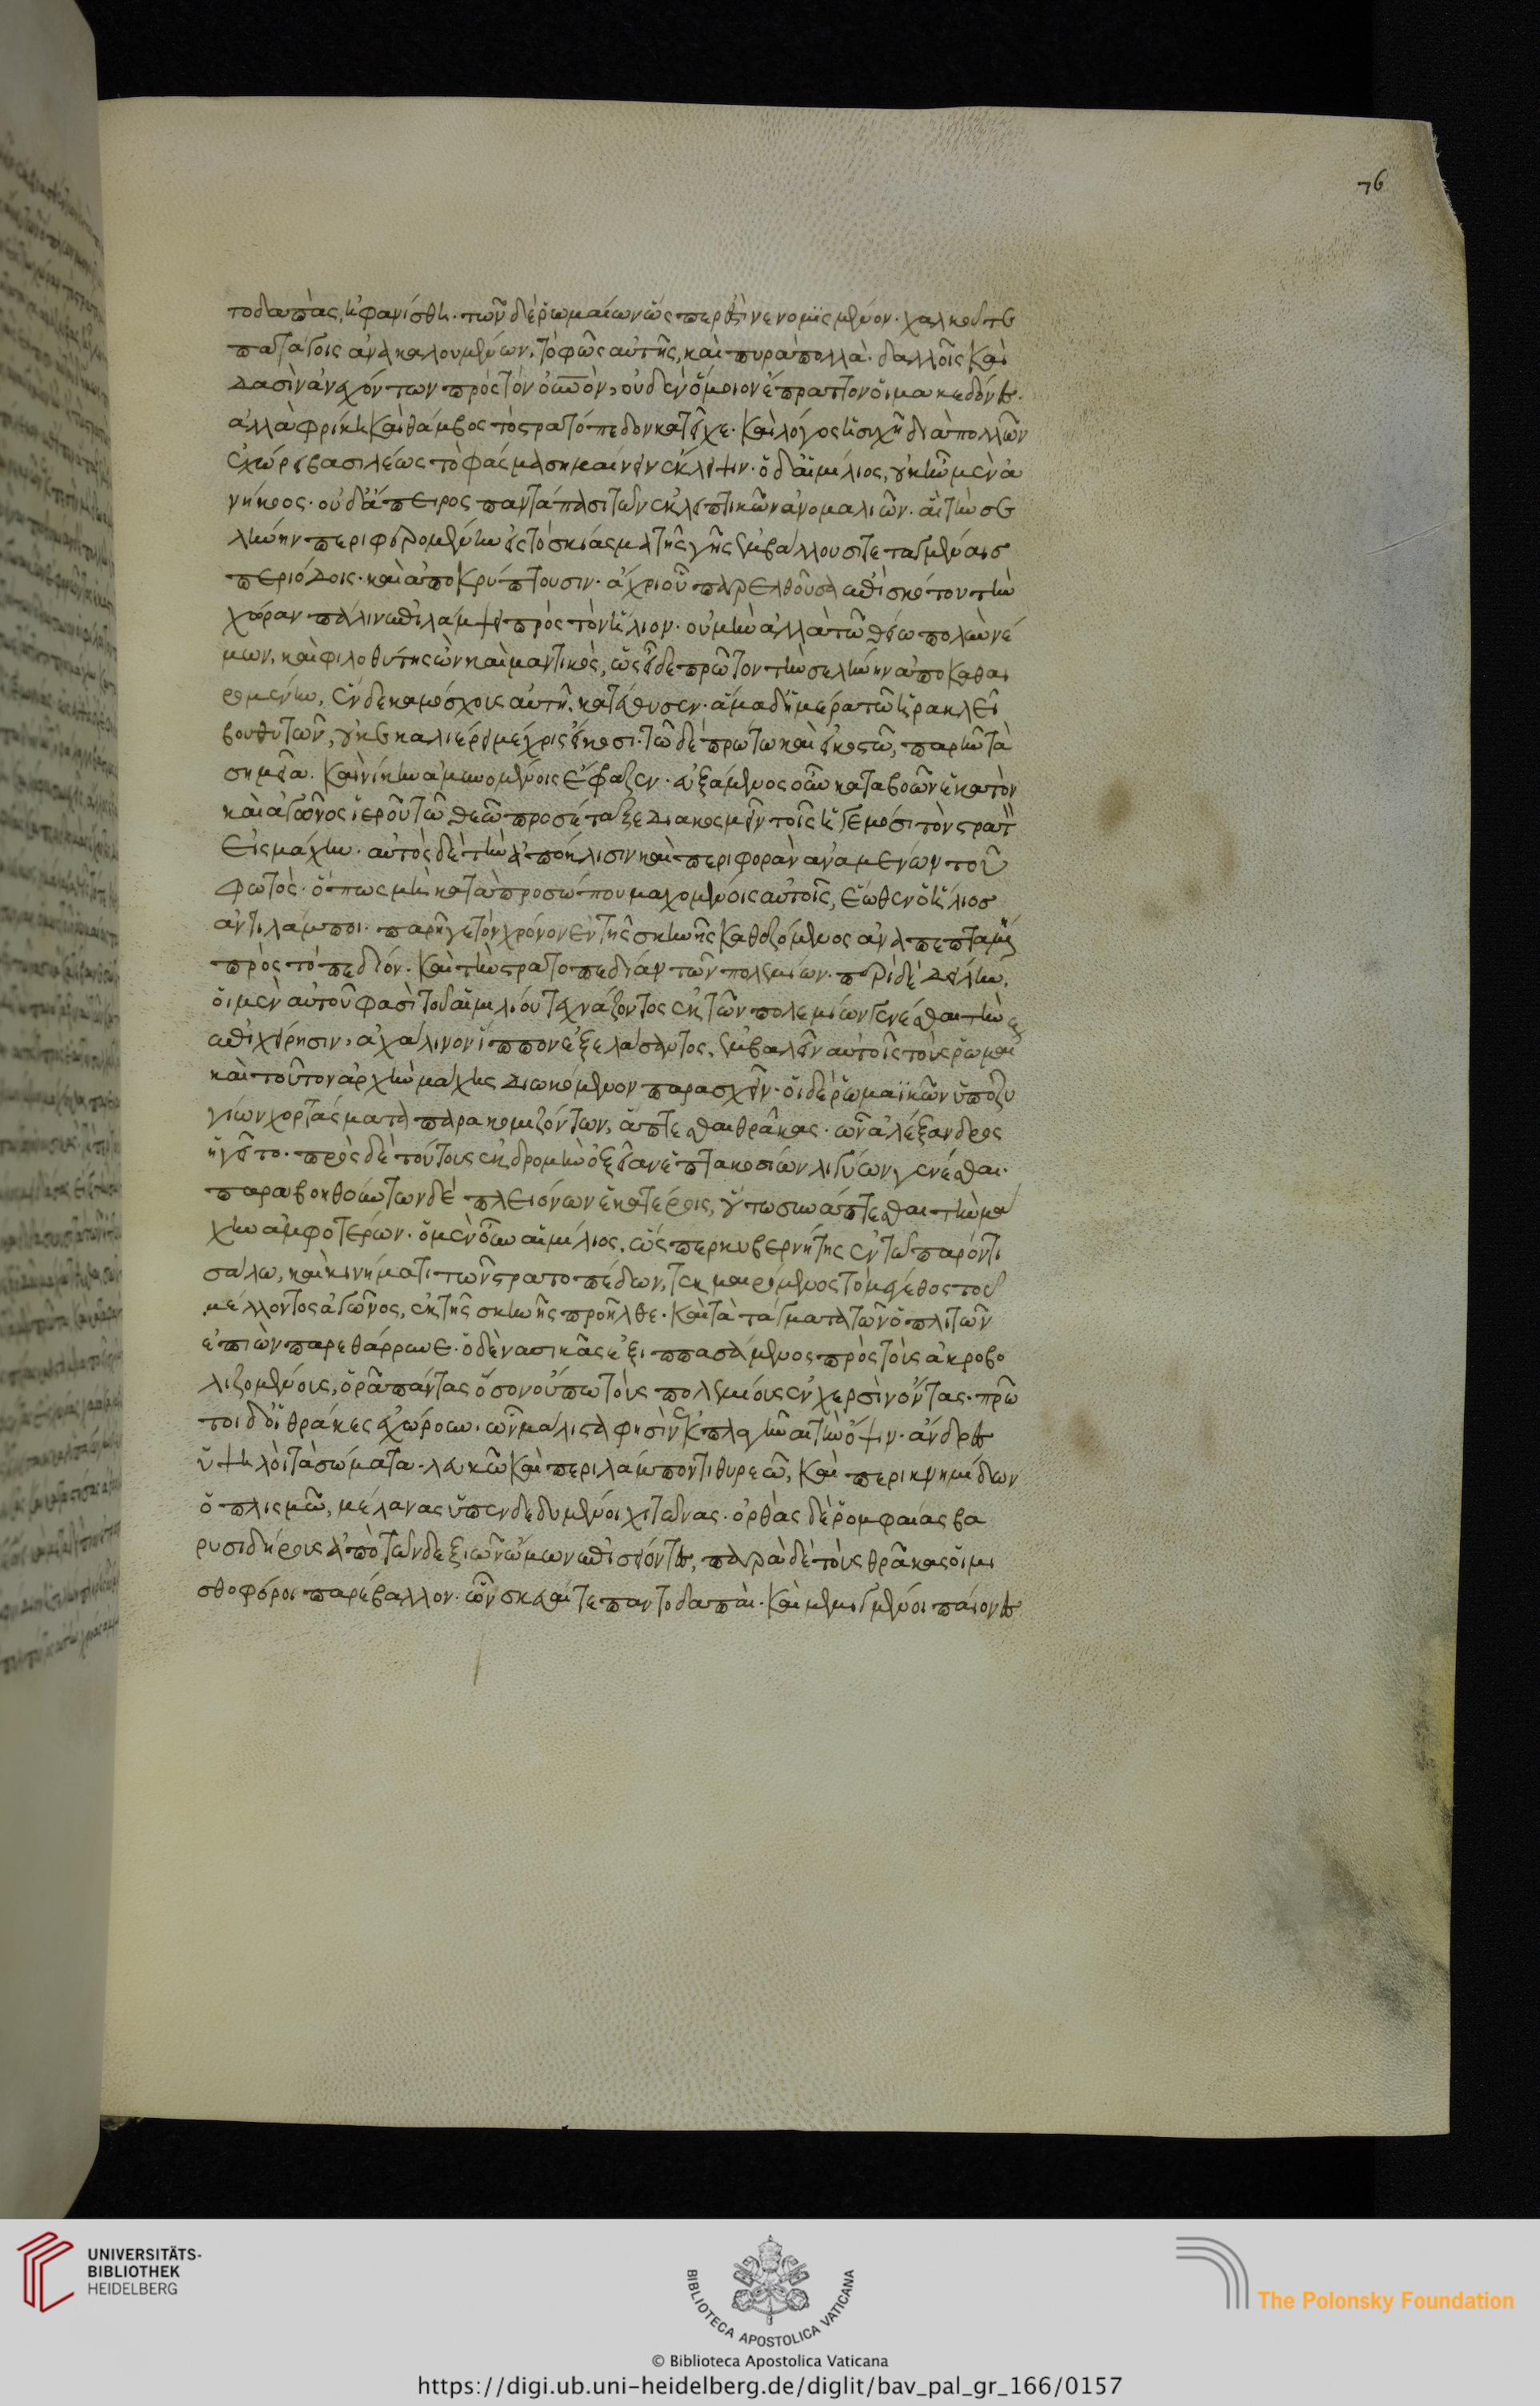 76
τοδαπὰς, ἠφανίσθη. τῶν δὲ ῥωμαίων ὥσπερ ἐστὶ νενομισμένον. χαλκοῦ τε
πατάγοις ἀνακαλουμένων, τὸ φῶς αὐτῆς, καὶ πυρὰ πολλὰ. δαλλοῖς καὶ
δασὶν ἀνεχόντων πρὸς τὸν οὐνὸν, οὐδὲν ὅμοιον ἔπραττον οἱ μακεδόνες.
ἀλλὰ φρίκη καὶ θάμβος τὸ στρατόπεδον κατεῖχε. καὶ λόγος ἡσυχῆ διὰ πολλῶν
ἐχώρει βασιλέως τὸ φάσμα σημαίνειν ἔκλειψιν. ὁ δ' αἰμίλιος, οὐκ ἦν μὲν ἀ
νήκοος. οὐδ' ἄπειρος παντάπασι τῶν ἐκλειπτικῶν ἀνομαλιῶν. αἳ τὴν σε
λήνην περιφερομένην εἰς τὸ σκίασμα τῆς γῆς ἐμβάλλουσι τεταγμέναις
περιόδοις. καὶ ἀποκρύπτουσιν. ἄχρι οὗ παρελθοῦσα ἐπισκότου τὴν
χώραν πάλιν ἐπιλάμψει πρὸς τὸν ἥλιον. οὐ μὴν ἀλλὰ τῷ θείῳ πολὺ νέ
μων, καὶ φιλοθύτης ὢν καὶ μαντικὸς, ὡς εἶδε πρῶτον τὴν σελήνην ἀποκαθαι
ρομένην, ἕνδεκα μόσχοις αὐτῇ. κατέθυσεν. ἅμα δ' ἡμέρα τῷ ἡρακλεῖ
βουθυτῶν, οὐκ ἐκαλιέρει μέχρις εἴκοσι. τῷ δὲ πρώτῳ καὶ εἰκοστῷ, παρῆν τὰ
σημεῖα. καὶ νίκην ἀμυνομένοις ἔφαζεν. εὐξάμενος οὖν κατὰ βοῶν ἑκατὸν
καὶ ἀγῶνος ἱεροῦ τῷ θεῷ προσέταξε διακοσμεῖν τοῖς ἡγεμόσι τὸν στρατ
εἰς μάχην. αὐτὸς δὲ τὴν ἀπόκλισιν καὶ περιφορὰν ἀναμένων τοῦ
φωτὸς. ὅπως μὴ κατὰ προσώπου μαχομένοις αὐτοῖς, ἕωθεν ὁ ἥλιος
ἀντιλάμποι. παρῆγε τὸν χρόνον ἐν τῆς σκηνῆς καθεζόμενος ἀναπεπταμέν
πρὸς τὸ πεδίον. καὶ τὴν στρατοπεδείαν τῶν πολεμίων. περὶ δὲ δείλην,
οἱ μὲν αὐτοῦ φασὶ τοῦ αἰμιλίου τεχνάζοντος ἐκ τῶν πολεμίων γενέσθαι τὴν
ἐπιχείρησιν, ἀχάλινον ἵππον ἐξελάσαντος, ἐμβαλεῖν αὐτοῖς τοὺς ῥωμαί
καὶ τοῦτον ἀρχὴν μάχης διωκόμενον παρασχεῖν. οἱ δὲ ῥωμαϊκῶν ὑποζυ
γίων χορτάσματα παρακομιζόντων, ἅπτεσθαι θρᾶκας. ὧν ἀλέξανδρος
ἡγεῖτο. πρὸς δὲ τούτους ἐκδρομὴν ὀξεῖαν ἑπτακοσίων λιγύων γενέσθαι.
παραβοηθούντων δὲ πλειόνων ἑκατέροις, οὕτω συνάπτεσθαι τὴν μά
χην ἀμφοτέρων. ὁ μὲν οὖν αἰμίλιος. ὥσπερ κυβερνήτης ἐν τῷ παρόντι
σάλῳ, καὶ κινήματι τῶν στρατοπέδων, τεκμαιρόμενος τὸ μέγεθος τοῦ
μέλλοντος ἀγῶνος, ἐκ τῆς σκηνῆς προῆλθε. καὶ τὰ τάγματα τῶν ὁπλιτῶν
ἐπιὼν παρεθάρρυνε. ὁ δὲ νασικᾶς ἐξιππασάμενος πρὸς τοὺς ἀκροβο
λιζομένους, ὁρᾷ πάντας ὅσον οὔπω τοὺς πολεμίους ἐν χερσὶν ὄντας. πρῶ
τοι δ' οἱ θρᾶκες ἐχώρουν. ὧν μάλιστά φησὶν ἐκπλαγῆναι τὴν ὄψιν. ἄνδρες
ὑψηλοὶ τὰ σώματα. λευκῷ καὶ περιλάμποντι θυρεῷ, καὶ περικνημίδων
ὁπλισμῷ, μέλανας ὑπενδεδυμένοι χιτῶνας. ὀρθὰς δὲ ῥομφαίας βα
ρυσιδήρους ἀπὸ τῶν δεξιῶν ὤμων ἐπισείοντες, παρὰ δὲ τοὺς θρᾶκας οἱ μι
σθοφόροι παρέβαλλον. ὧν σκευαί τε παντοδαπαὶ. καὶ μεμιγμένοι παίονες
UNIVERSITÄTS-
BIBLIOTHEK
HEIDELBERG
BIBLIOTECA APOSTOLICA VATICANA
The Polonsky Foundation
© Biblioteca Apostolica Vaticana
https://digi.ub.uni-heidelberg.de/diglit/bav_pal_gr_166/0157